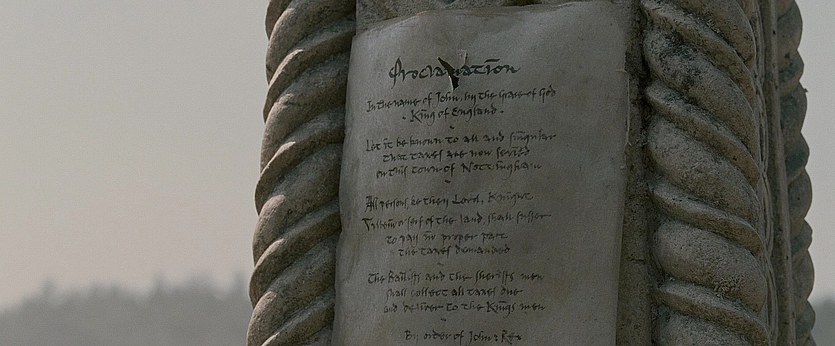 Proclamation
In the name of John, by the Grace of God
· King of England ·
Let it be known to all and singular
that taxes are now
on this town of Nottingham
All persons, be they Lord, Knight
or serf of the land shall suffer
to pay proper part
the taxes demanded
The Bailiffs and the Sheriffs men
shall collect all taxes due
and deliver to the Kings men
By order of John: Rex